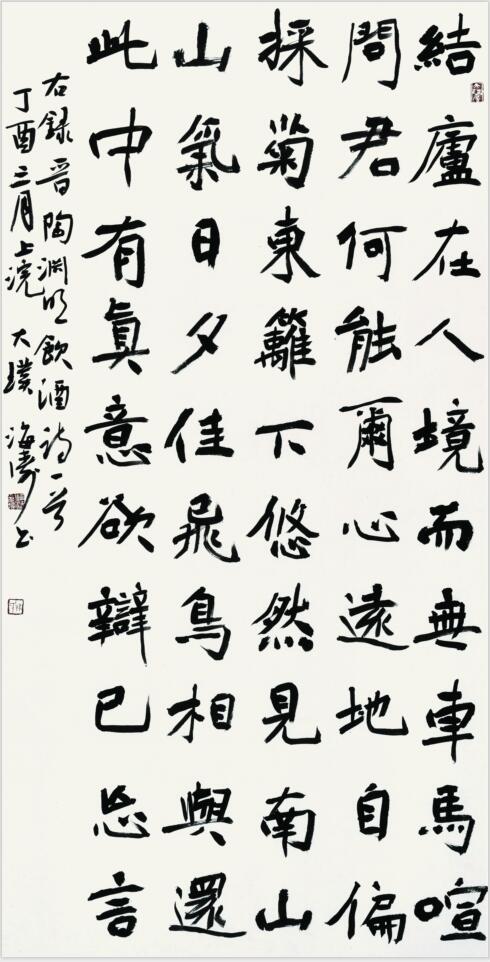 結廬在人境而無車馬喧
問君何能爾心遠地自偏
採菊東籬下悠然見南山
山氣日夕佳飛鳥相與還
此中有真意欲辯已忘言
右録晋陶淵明飲酒詩一首
丁酉三月上浣 大璞 海濤書